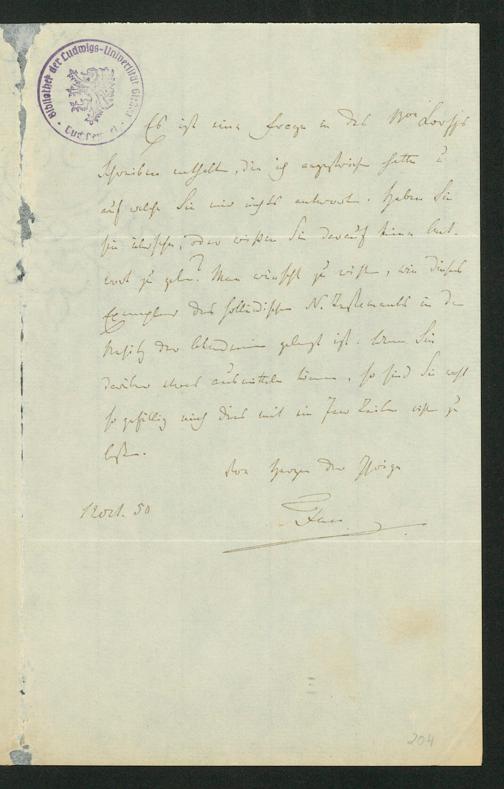 Bibliothek der Ludwigs-Universität Giessen
Es ist eine Frage in des
Schreiben enthalten, die ich angestrichen hatte u
auf welche Sie mir nichts antworten. Haben Sie
sie übersehen, oder wissen Sie darauf keine Ant-
wort zu geben? Man wünscht zu wissen, wie dieses
Exemplar des holländischen N. Testaments in den
Besitz der gelangt ist. Wenn Sie
darüber etwas ausmitteln können, so sind Sie wohl
so gefällig mich dies mit ein Paar Zeilen wissen zu
lassen.
Von Herzen der Ihrige
12 Oct. 50
204